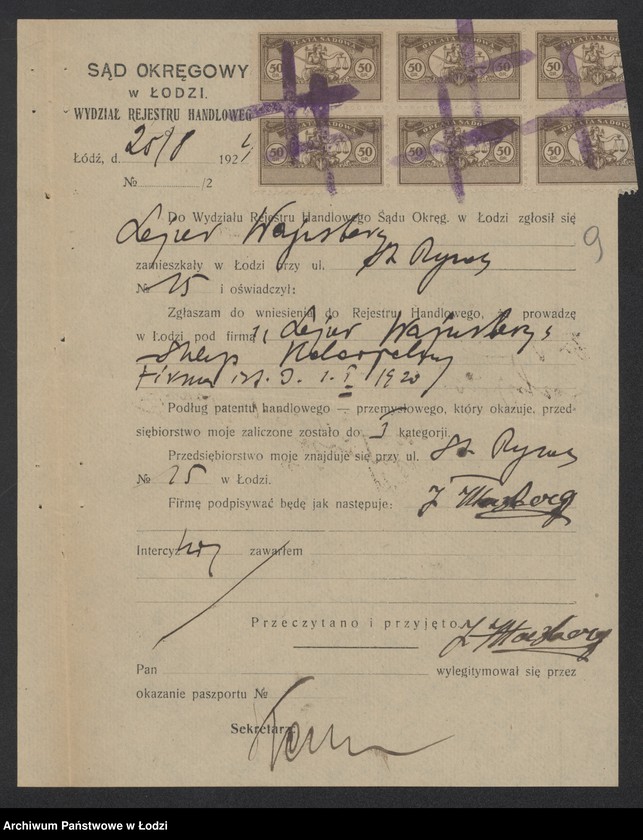 SĄD OKRĘGOWY
w ŁODZI.
WYDZIAŁ REJESTRU HANDLOWEG
OPŁATA SĄDOWA
50 50
OPŁATA SĄDOWA
50 50
OPŁATA SĄDOWA
50
50 50
50 50
50
Łódź, d. 20/8 192
№ /2
9
Do Wydziału Rejestru Handlowego Sądu Okręg. w Łodzi zgłosił się
Lejzer Wajnberg
zamieszkały w Łodzi przy ul. St. Rynek
№ 15 i oświadczył:
Zgłaszam do wniesienia do Rejestru Handlowego, że prowadzę
w Łodzi pod firmą „Lejzer Wajnberg"
Sklep
Firma ist. 1920
Podług patentu handlowego — przemysłowego, który okazuje, przed-
siębiorstwo moje zaliczone zostało do kategorji.
Przedsiębiorstwo moje znajduje się przy ul. St. Rynek
№ 15 w Łodzi.
Firmę podpisywać będę jak następuje:
Intercyzy zawarłem
Przeczytano i przyjęto.
Pan wylegitymował się przez
okazanie paszportu №
Sekretarz
Archiwum Państwowe w Łodzi